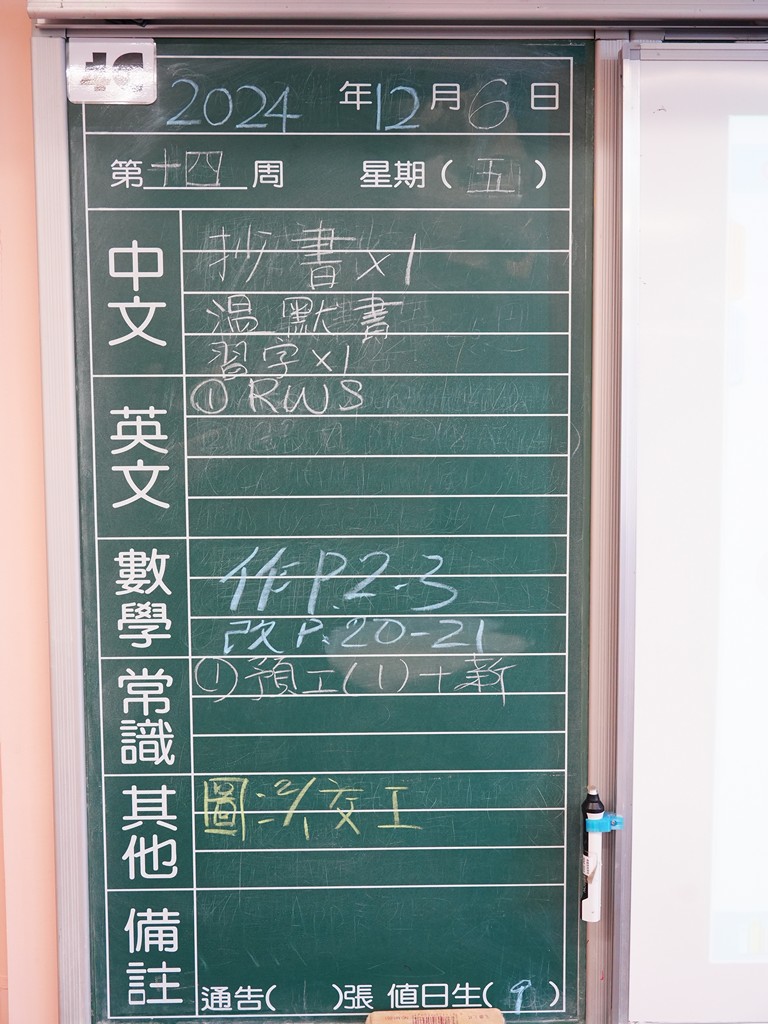 2024 年 12 月 6 日
第 十四 周 星期 ( 五 )
中文
抄書x1
温默書
習字x1
英文
① RWS
數學
作P.2-3
改P.20-21
常識
① 預工(1)+新
其他
圖:2/1交工
備註
通告( )張 值日生( 9 )